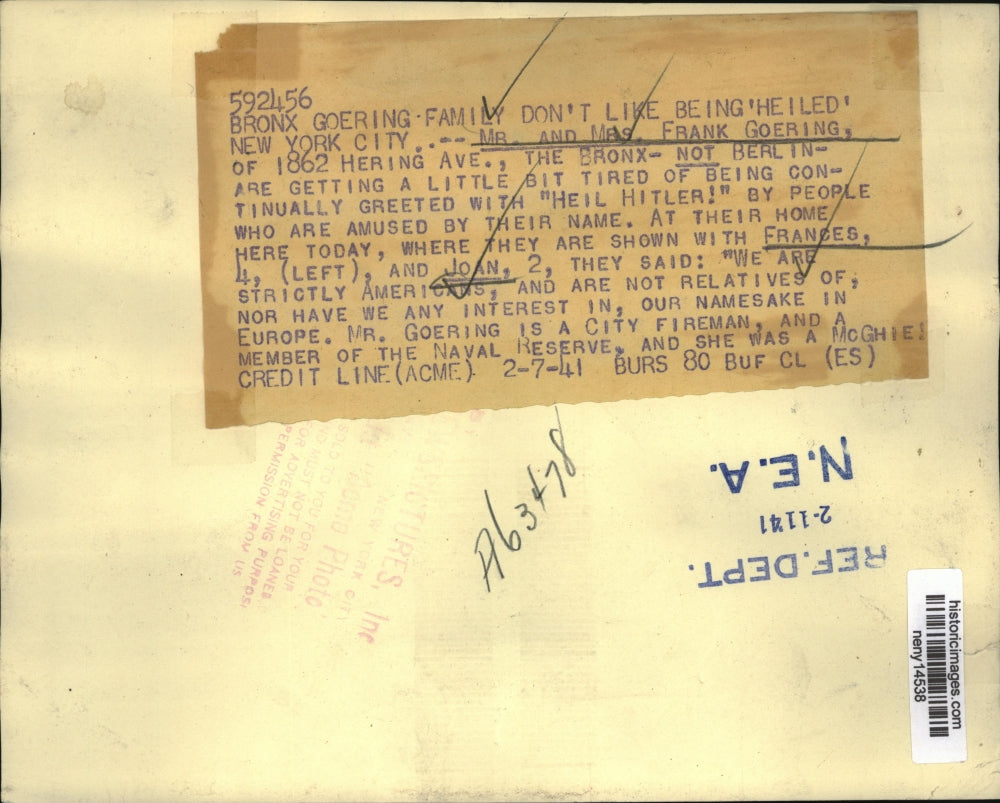 592456
BRONX GOERING FAMILY DON'T LIKE BEING 'HEILED'
NEW YORK CITY..-- MR. AND MRS. FRANK GOERING,
OF 1862 HERING AVE., THE BRONX- NOT BERLIN-
ARE GETTING A LITTLE BIT TIRED OF BEING CON-
TINUALLY GREETED WITH "HEIL HITLER!" BY PEOPLE
WHO ARE AMUSED BY THEIR NAME. AT THEIR HOME
HERE TODAY, WHERE THEY ARE SHOWN WITH FRANCES,
4, (LEFT), AND JOAN, 2, THEY SAID: "WE ARE
STRICTLY AMERICANS, AND ARE NOT RELATIVES OF,
NOR HAVE WE ANY INTEREST IN, OUR NAMESAKE IN
EUROPE. MR. GOERING IS A CITY FIREMAN, AND A
MEMBER OF THE NAVAL RESERVE, AND SHE WAS A MCGHIE.
CREDIT LINE (ACME) 2-7-41 BURS 80 BUF CL (ES)
PICTURES, Inc
NEW YORK CITY
Photo
SOLD TO YOU FOR YOUR
AND MUST NOT BE LOANED
FOR ADVERTISING PURPOS
PERMISSION FROM US
A63478
N.E.A.
2-11-41
REF. DEPT.
historicimages.com
neny14538